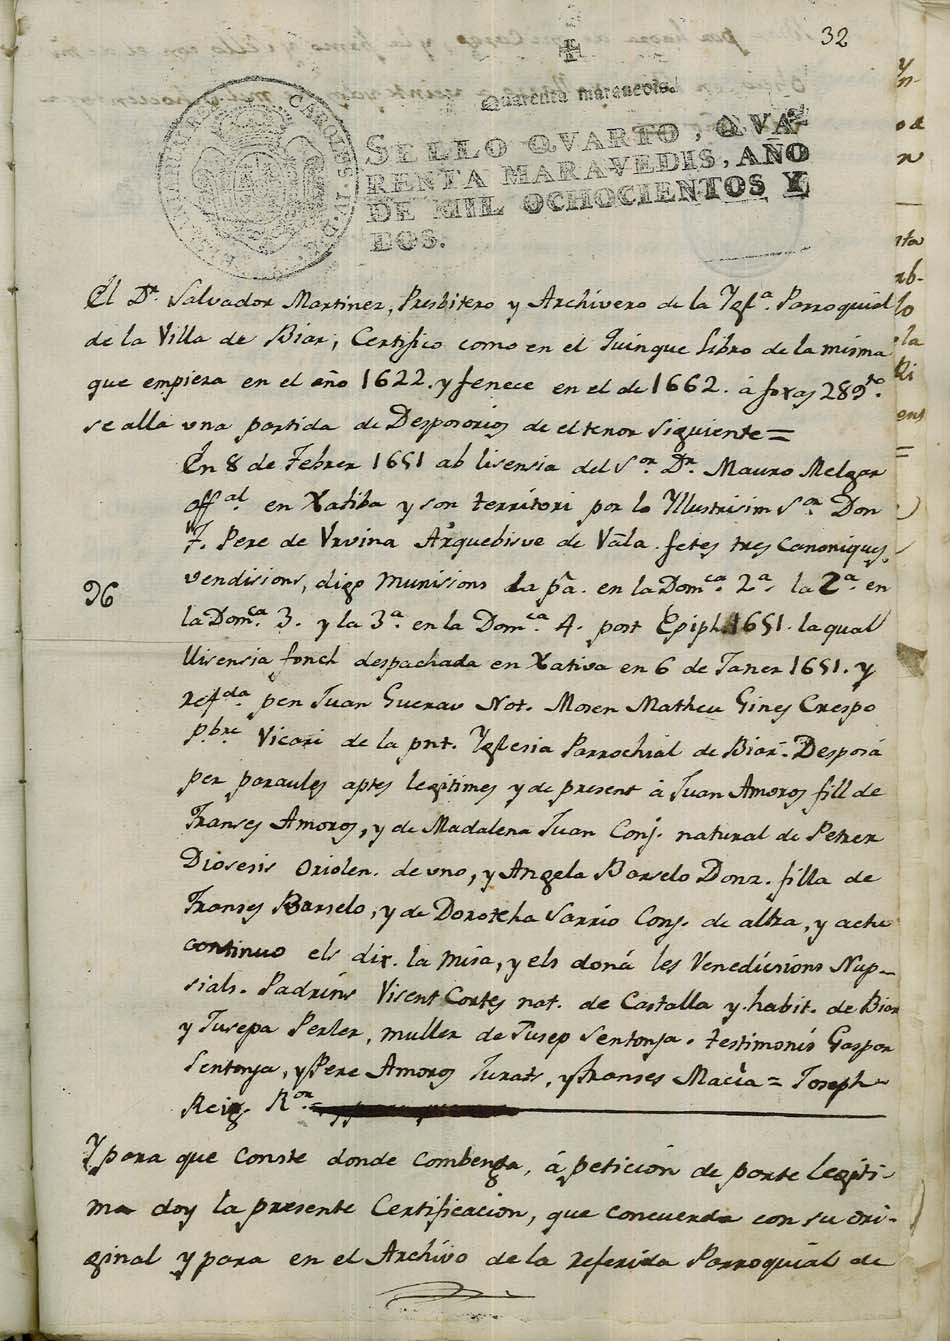 32
Quarenta maravedis.
SELLO QVARTO, QVA-
RENTA MARAVEDIS, AÑO
DE MIL OCHOCIENTOS Y
DOS.
CAROLUS IV D.
El Dr. Salvador Martinez, Presbitero y Archivero de la Yglª. Parroquial
de la Villa de Biar, Certifico como en el Quinque Libro de la misma
que empieza en el año 1622. y fenece en el de 1662. á foxas 289to.
se alla una partida de Desposorios de el tenor siguiente=
En 8 de Febrer 1651 ab lisensia del Sor. Dr. Mauro Melgar
offal. en Xatiba y son territori per lo Yllustrisim Sor. Don
F. Pere de Urvina Arquebisve de Vala. fetes tres canoniques
vendisions, digo munisions la pa. en la Domca. 2ª. la 2ª en
96
la Domca. 3. y la 3ª. en la Domca. 4. post Epiph. 1651. la qual
llisensia fonch despachada en Xativa en 6 de Janer 1651. y
refda. pen Juan Guerau Not. Mosen Matheu Gines Crespo
pbre. Vicari de la pnt. Yglesia Parrochial de Biar. Desposá
per paraules aptes legitimes y de present á Juan Amoros fill de
Franses Amoros, y de Madalena Juan Conj. natural de Petrer
Diosesis Oriolen. de uno, y Angela Barselo Donz. filla de
Franses Barselo, y de Dorotcha Sarrio Conj. de altra, y actu
continuo els dix. la misa, y els doná les Venedisions Nup-
sials. Padrins Visent Cortes nat. de Castalla y habit. de Biar
y Jusepa Perler, muller de Jusep Sentonja. testimonis Gaspar
Sentonja, y Pere Amoros Jurats, y franses Maçia = Joseph
Reig. Ror.
Y para que conste donde combenga, á peticion de parte legiti-
ma doy la presente Certificacion, que concuerda con su ori-
ginal y para en el Archivo de la referida Parroquial de